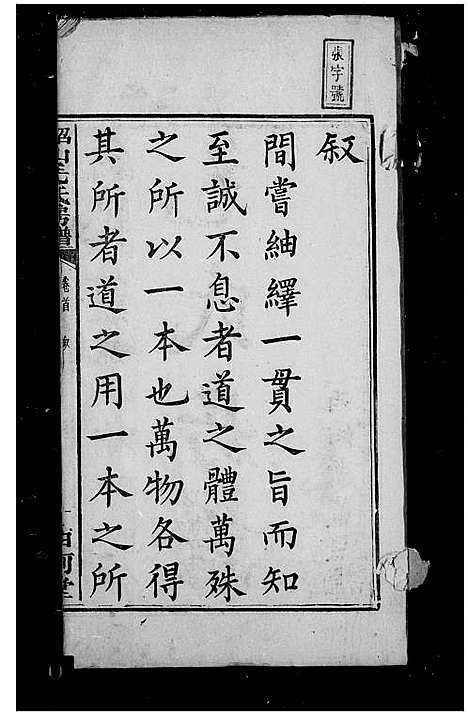 張字號
叙
間嘗紬繹一貫之旨而知
至誠不息者道之體萬殊
之所以一本也萬物各得
其所者道之用一本之所
毛氏房譜
卷首